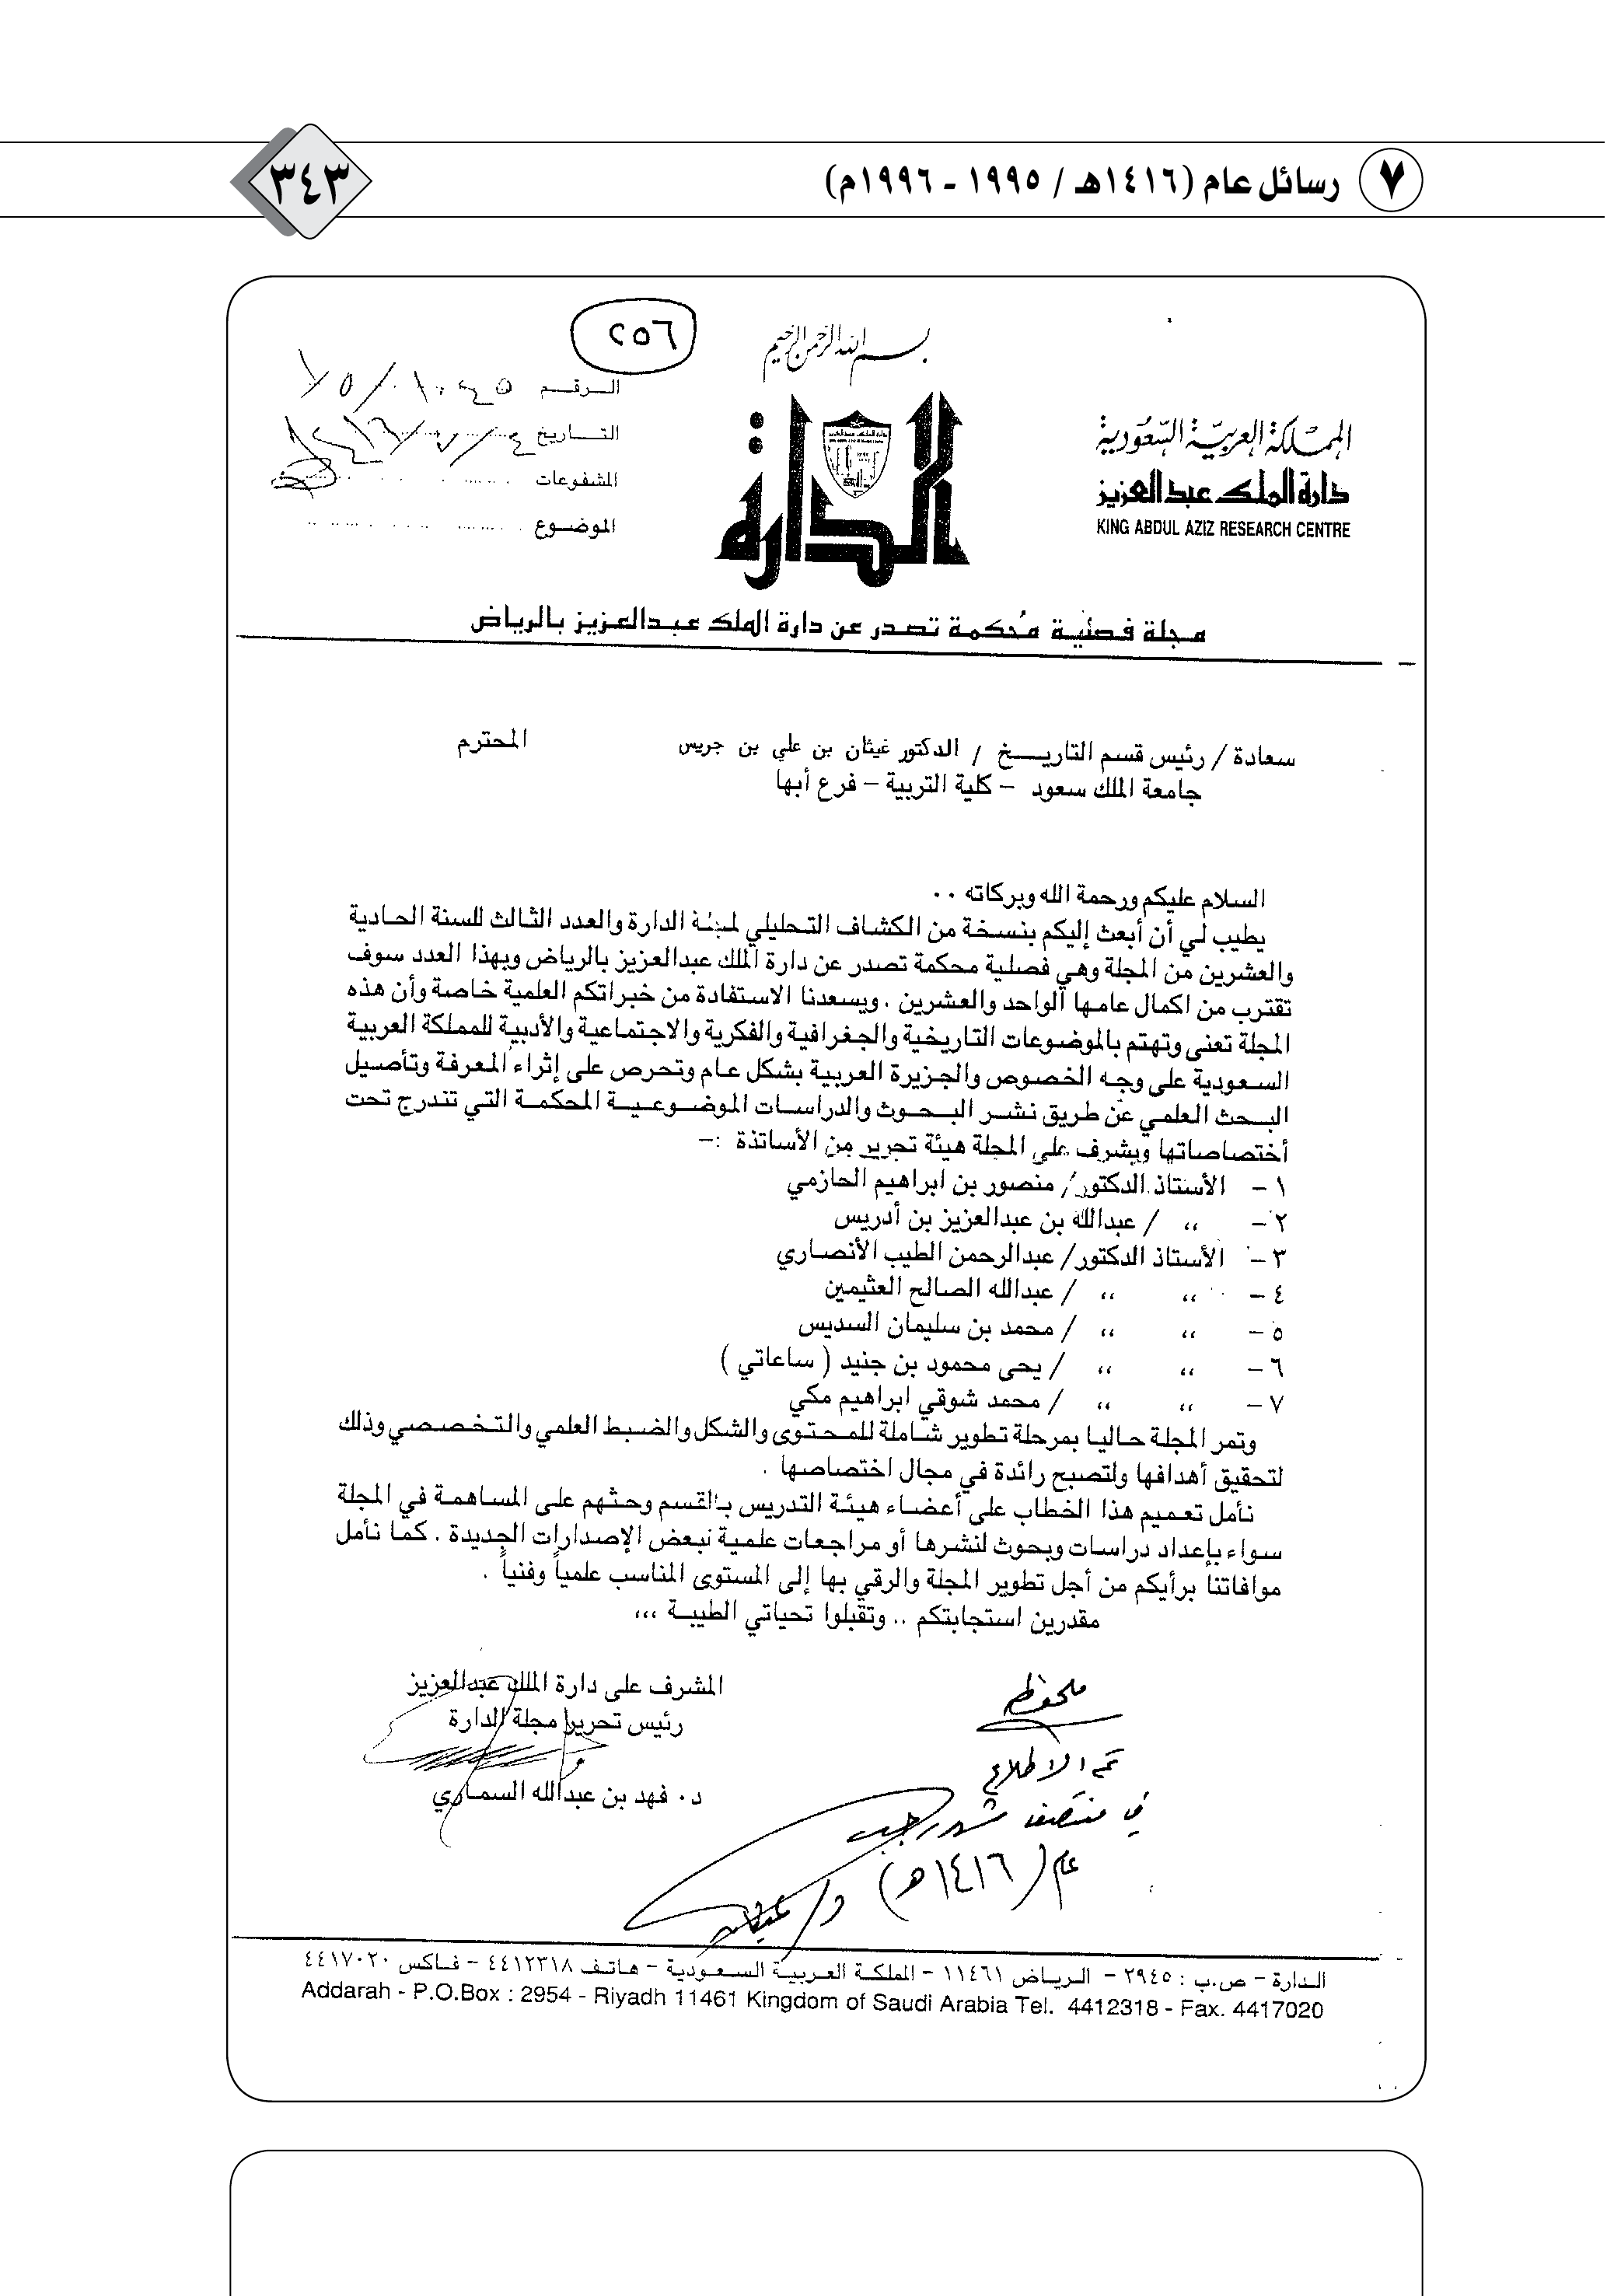 ٧ رسائل عام (١٤١٦هـ / ١٩٩٥ - ١٩٩٦م)
٣٤٣
٢٥٦
بسم الله الرحمن الرحيم
المملكة العربية السعودية
دارة الملك عبدالعزيز
KING ABDUL AZIZ RESEARCH CENTRE
الدارة
الرقم
التاريخ
المشفوعات
الموضوع
مجلة فصلية مُحكمة تصدر عن دارة الملك عبدالعزيز بالرياض
سعادة / رئيس قسم التاريخ / الدكتور غيثان بن علي بن جريس المحترم
جامعة الملك سعود – كلية التربية – فرع أبها
السلام عليكم ورحمة الله وبركاته ..
يطيب لي أن أبعث إليكم بنسخة من الكشاف التحليلي لمجلة الدارة والعدد الثالث للسنة الحادية
والعشرين من المجلة وهي فصلية محكمة تصدر عن دارة الملك عبدالعزيز بالرياض وبهذا العدد سوف
تقترب من اكمال عامها الواحد والعشرين . ويسعدنا الاستفادة من خبراتكم العلمية خاصة وأن هذه
المجلة تعنى وتهتم بالموضوعات التاريخية والجغرافية والفكرية والاجتماعية والأدبية للمملكة العربية
السعودية على وجه الخصوص والجزيرة العربية بشكل عام وتحرص على إثراء المعرفة وتأصيل
البحث العلمي عن طريق نشر البحوث والدراسات الموضوعية المحكمة التي تندرج تحت
أختصاصاتها ويشرف على المجلة هيئة تحرير من الأساتذة :–
١ – الأستاذ الدكتور/ منصور بن ابراهيم الحازمي
٢ – ،، / عبدالله بن عبدالعزيز بن أدريس
٣ – الأستاذ الدكتور/ عبدالرحمن الطيب الأنصاري
٤ – ،، ،، / عبدالله الصالح العثيمين
٥ – ،، ،، / محمد بن سليمان السديس
٦ – ،، ،، / يحى محمود بن جنيد ( ساعاتي )
٧ – ،، ،، / محمد شوقي ابراهيم مكي
وتمر المجلة حاليا بمرحلة تطوير شاملة للمحتوى والشكل والضبط العلمي والتخصصي وذلك
لتحقيق أهدافها ولتصبح رائدة في مجال اختصاصها .
نأمل تعميم هذا الخطاب على أعضاء هيئة التدريس بالقسم وحثهم على المساهمة في المجلة
سواء بإعداد دراسات وبحوث لنشرها أو مراجعات علمية لبعض الإصدارات الجديدة . كما نأمل
موافاتنا برأيكم من أجل تطوير المجلة والرقي بها إلى المستوى المناسب علمياً وفنياً .
مقدرين استجابتكم .. وتقبلوا تحياتي الطيبة ،،،
المشرف على دارة الملك عبدالعزيز
رئيس تحرير مجلة الدارة
د. فهد بن عبدالله السماري
ملحوظة
تم الاطلاع
في منتصف شهر رجب
عام (١٤١٦هـ)
د/ غيثان
الدارة – ص.ب : ٢٩٤٥ – الرياض ١١٤٦١ – المملكة العربية السعودية – هاتف ٤٤١٢٣١٨ – فاكس ٤٤١٧٠٢٠
Addarah - P.O.Box : 2954 - Riyadh 11461 Kingdom of Saudi Arabia Tel. 4412318 - Fax. 4417020